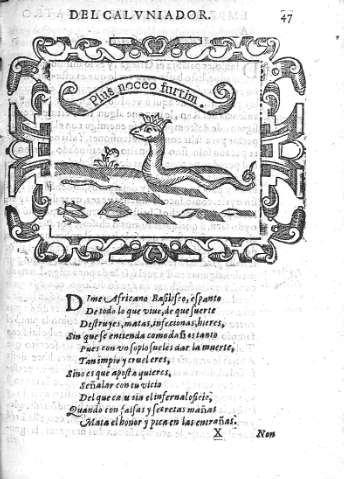 DEL CALVNIADOR. 47
Plus noceo furtim.
Dime Africano Basilisco, espanto
De todo lo que viue, de que suerte
Destruyes, matas, inficionas, hieres,
Sin que se entienda como dañas tanto
Pues con vn soplo sueles dar la muerte,
Tan impio y cruel eres,
Sino es que aposta quieres,
Señalar con tu vicio
Del que
Quando con falsas y secretas mañas
Mata el honor y pica en las entrañas.
X Non